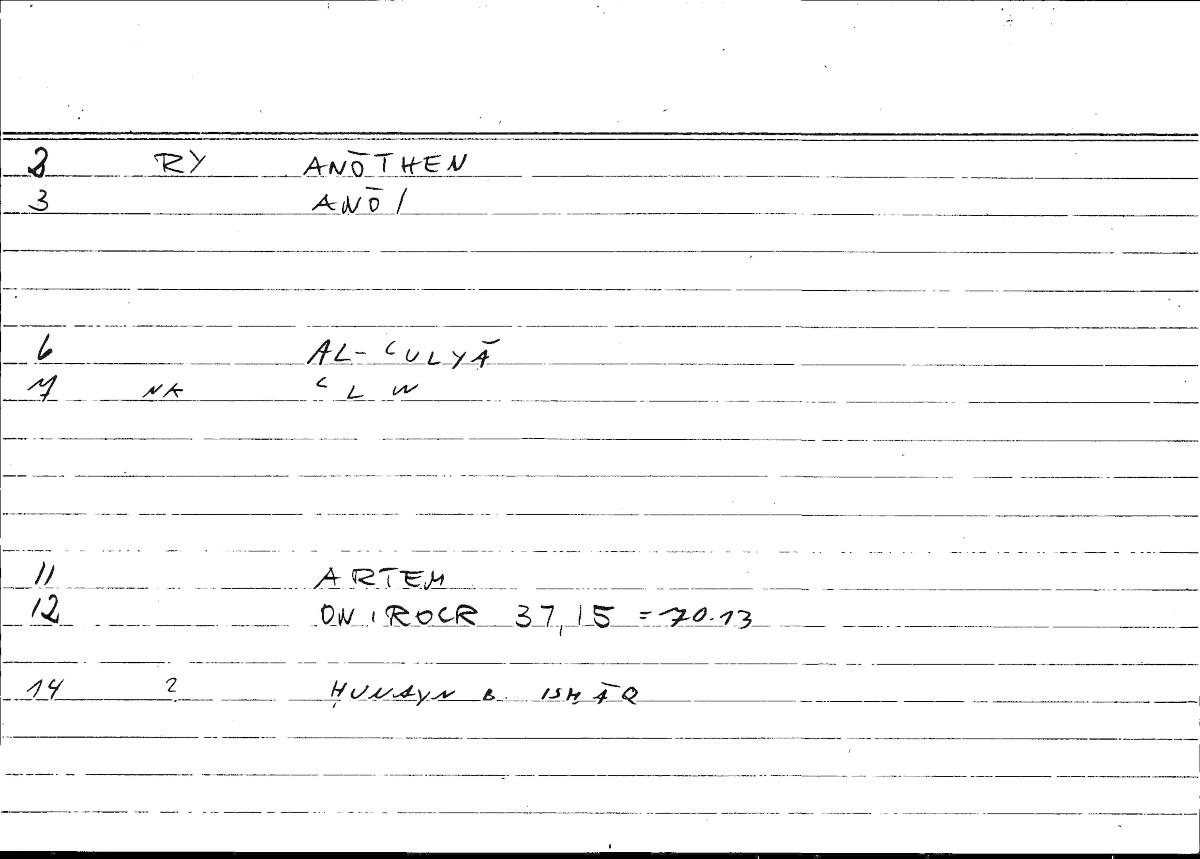 2 RY ANŌTHEN
3 ANŌ/
6 AL-ʿULYĀ
7 NK ʿLW
11 ARTEM
12 ONIROCR 37,15 = 70.13
14 2 ḤUNAYN B. ISḤĀQ